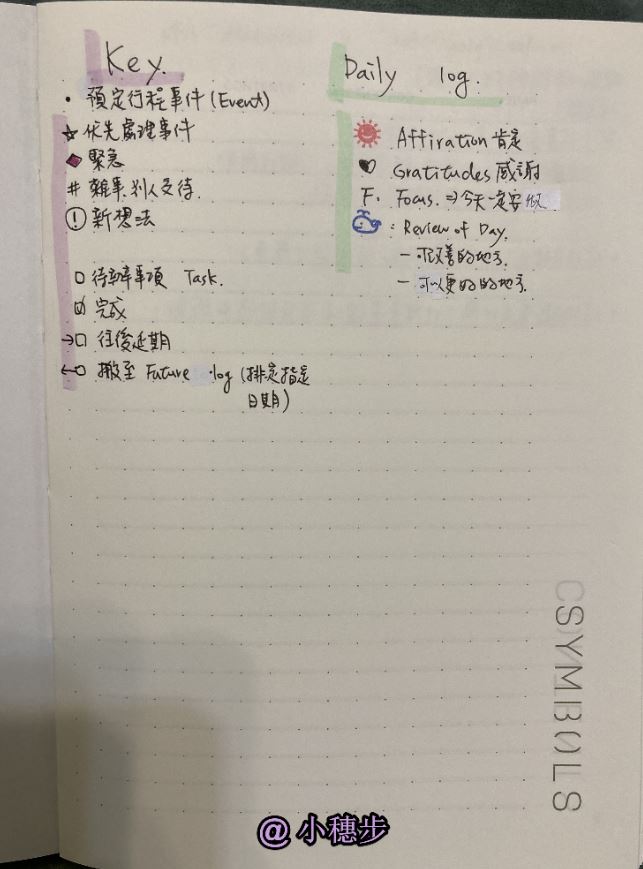 Key.
• 預定行程事件(Event)
☆ 優先處理事件
◆ 緊急
# 雜事.別人交待.
! 新想法
□ 待辦事項 Task.
☑ 完成
→□ 往後延期
←□ 搬至 Future log (排定指定
日期)
Daily log.
Affiration 肯定
♥ Gratitudes 感謝
F. Focus. ⇒ 今天一定要做
: Review of Day.
- 可改善的地方.
- 可以更好的地方.
CSYMBOLS
@小穗步